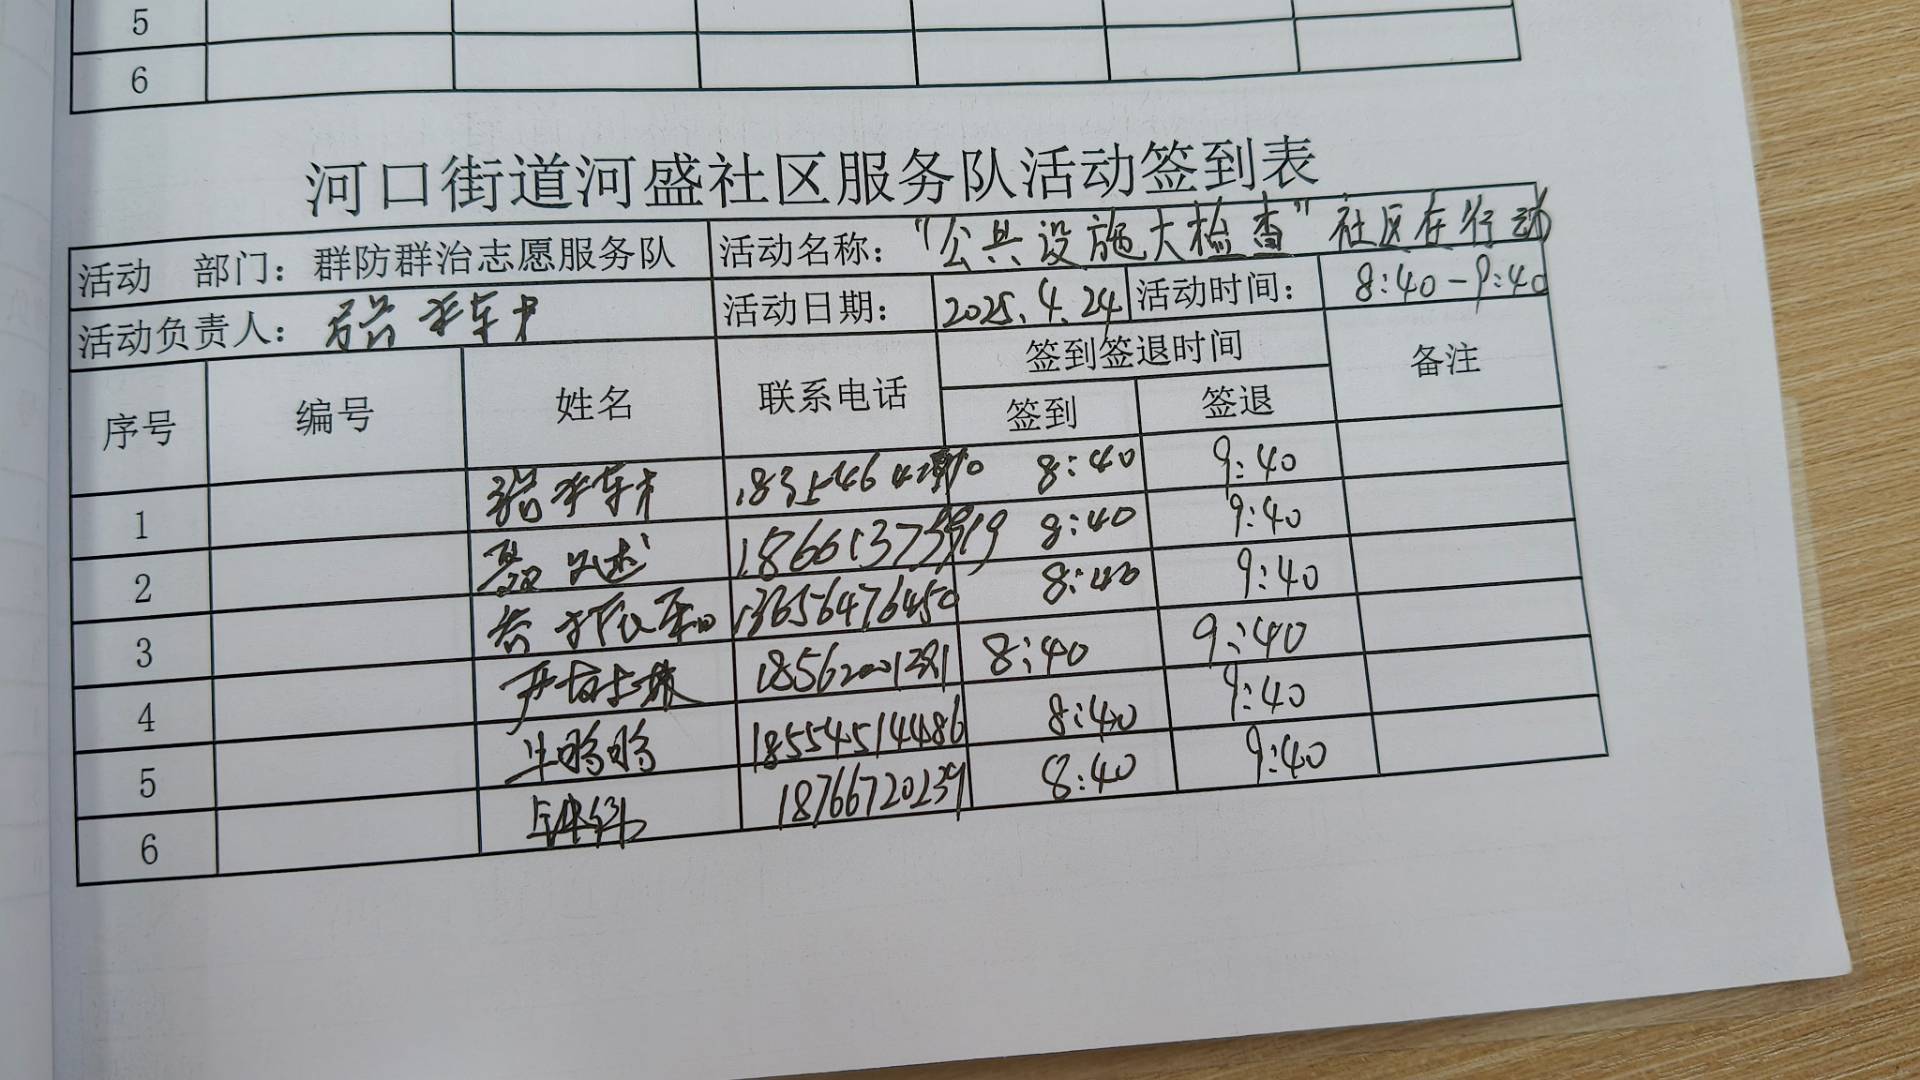 5
6
河口街道河盛社区服务队活动签到表
活动 部门：群防群治志愿服务队 活动名称：“公共设施大检查”社区在行动
活动负责人： 活动日期： 2025.4.24 活动时间： 8:40-9:40
序号 编号 姓名 联系电话 签到签退时间 备注
签到 签退
1 8:40 9:40
2 8:40 9:40
3 13656476450 8:40 9:40
4 8:40 9:40
5 18554514486 8:40 9:40
6 18766720239 8:40 9:40